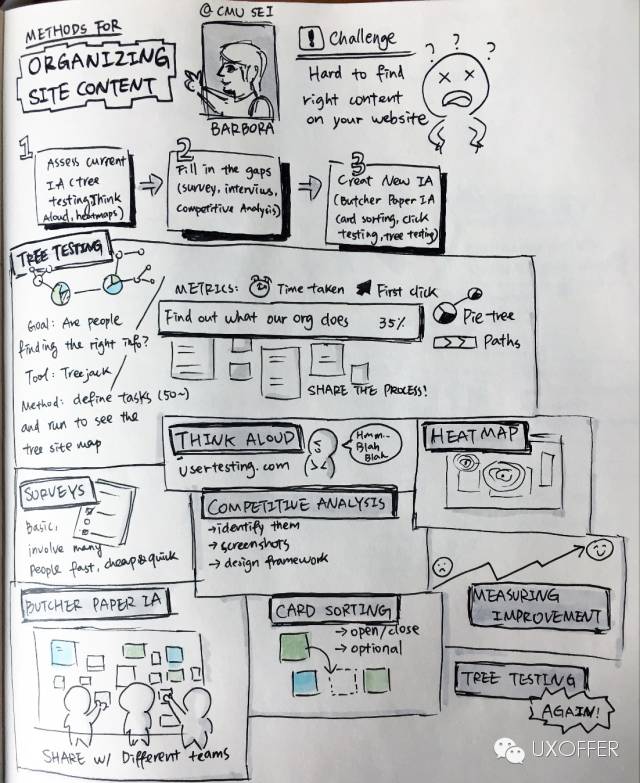 METHODS FOR
ORGANIZING
SITE CONTENT
@ CMU SEI
BARBORA
! Challenge
Hard to find
right content
on your website
? ? ?
1
Assess current
IA (tree
testing, Think
Aloud, heatmaps)
2
Fill in the gaps
(survey, intervius,
Competitive Analysis)
3
Creat New IA
(Butcher Paper IA
Card sorting, click
testing, tree testing)
TREE TESTING
Goal: Are people
finding the right info?
Tool: Treejack
Method: define tasks (50~)
and run to see the
tree site map
METRICS: Time taken First click
Find out what our org does 35%
Pie-tree
Paths
SHARE THE PROCESS!
THINK ALOUD
usertesting.com
Hmm..
Blah
Blah
HEATMAP
SURVEYS
Basic,
involve many
people fast, cheap & quick
COMPETITIVE ANALYSIS
→identify them
→screenshots
→design framework
MEASURING
IMPROVEMENT
BUTCHER PAPER IA
SHARE W/ Different teams
CARD SORTING
→ open/close
→ optional
TREE TESTING
AGAIN!
UXOFFER